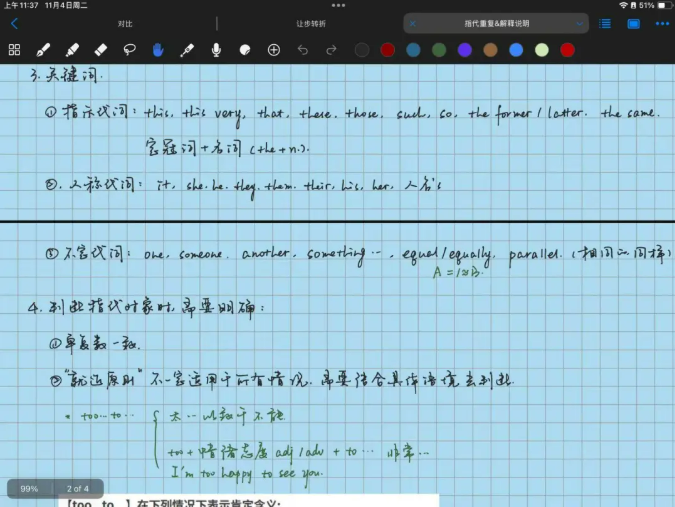 上午 11:37 11月4日周二
51%
对比
让步转折
指代重复&解释说明
3. 关键词.
① 指示代词: this, this very, that, these, those, such, so, the former / latter, the same.
定冠词+名词 (the+n.).
②. 人称代词: it, she, he, they, them, their, his, her, 人名's
③ 不定代词: one, someone, another, something …, equal/equally, parallel. (相同的、同样)
A = is B.
4. 判断指代对象时, 需要明确:
①单复数一致.
②"就近原则"不一定适用于所有情况, 需要结合具体语境去判断.
• too… to… { 太…以致于不能
too + 情绪态度 adj / adv + to … 非常…
I'm too happy to see you.
99% 2 of 4
【too...to...】在下列情况下表示肯定含义: